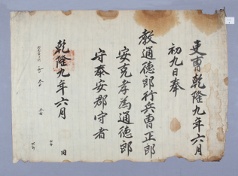 吏曹乾隆九年六月
初九日奉
教通德郎行兵曹正郎
安克孝為通德郎
守泰安郡守者
乾隆九年六月 日